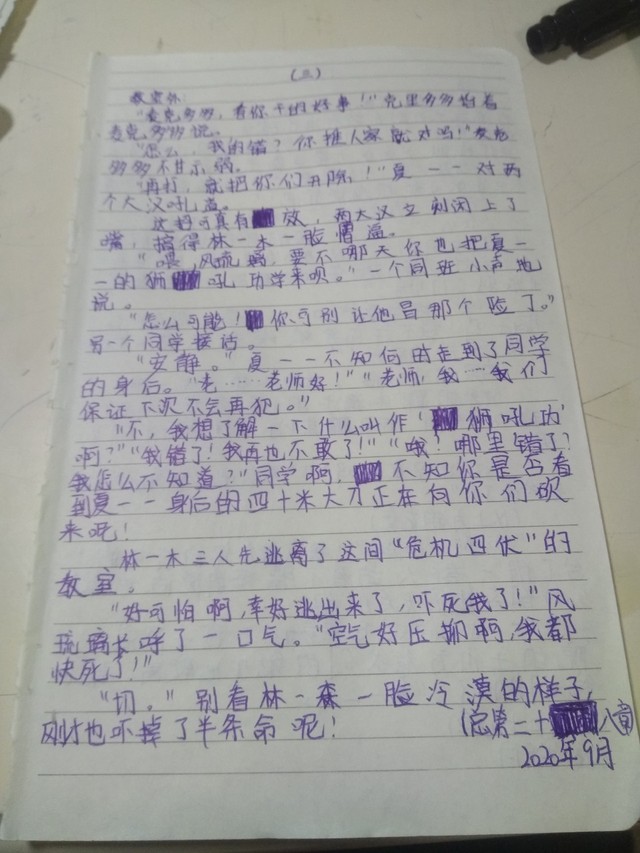 (三)
教室外:
"麦克多多,看你干的好事!"克里多多指着
麦克多多说。
"怎么,我的错?你推人家就对吗!"麦克
多多不甘示弱。
"再打,就把你们开除!"夏一一对两
个大汉吼道。
这招可真有放,两大汉立刻闭上了
嘴,搞得林一木一脸懵逼。
"喂,风琉璃,要不哪天你也把夏一
一的狮吼功学来呗。"一个同班小声地
说。
"怎么可能!你可别让他冒那个险了。"
另一个同学接话。
"安静。"夏一一不知何时走到了同学
的身后。"老……老师好!""老师,我……我们
保证下次不会再犯。"
"不,我想了解一下什么叫作'狮吼功'
啊?""我错了!我再也不敢了!""哦?哪里错了?
我怎么不知道?"同学啊,不知你是否看
到夏一一身后的四十米大刀正在向你们砍
来呢!
林一木三人先逃离了这间"危机四伏"的
教室。
"好可怕啊,幸好逃出来了,吓死我了!"风
琉璃长呼了一口气。"空气好压抑啊,我都
快死了!"
"切。"别看林一森一脸冷漠的样子,
刚才也吓掉了半条命呢!
(总第二十八章)
2020年9月